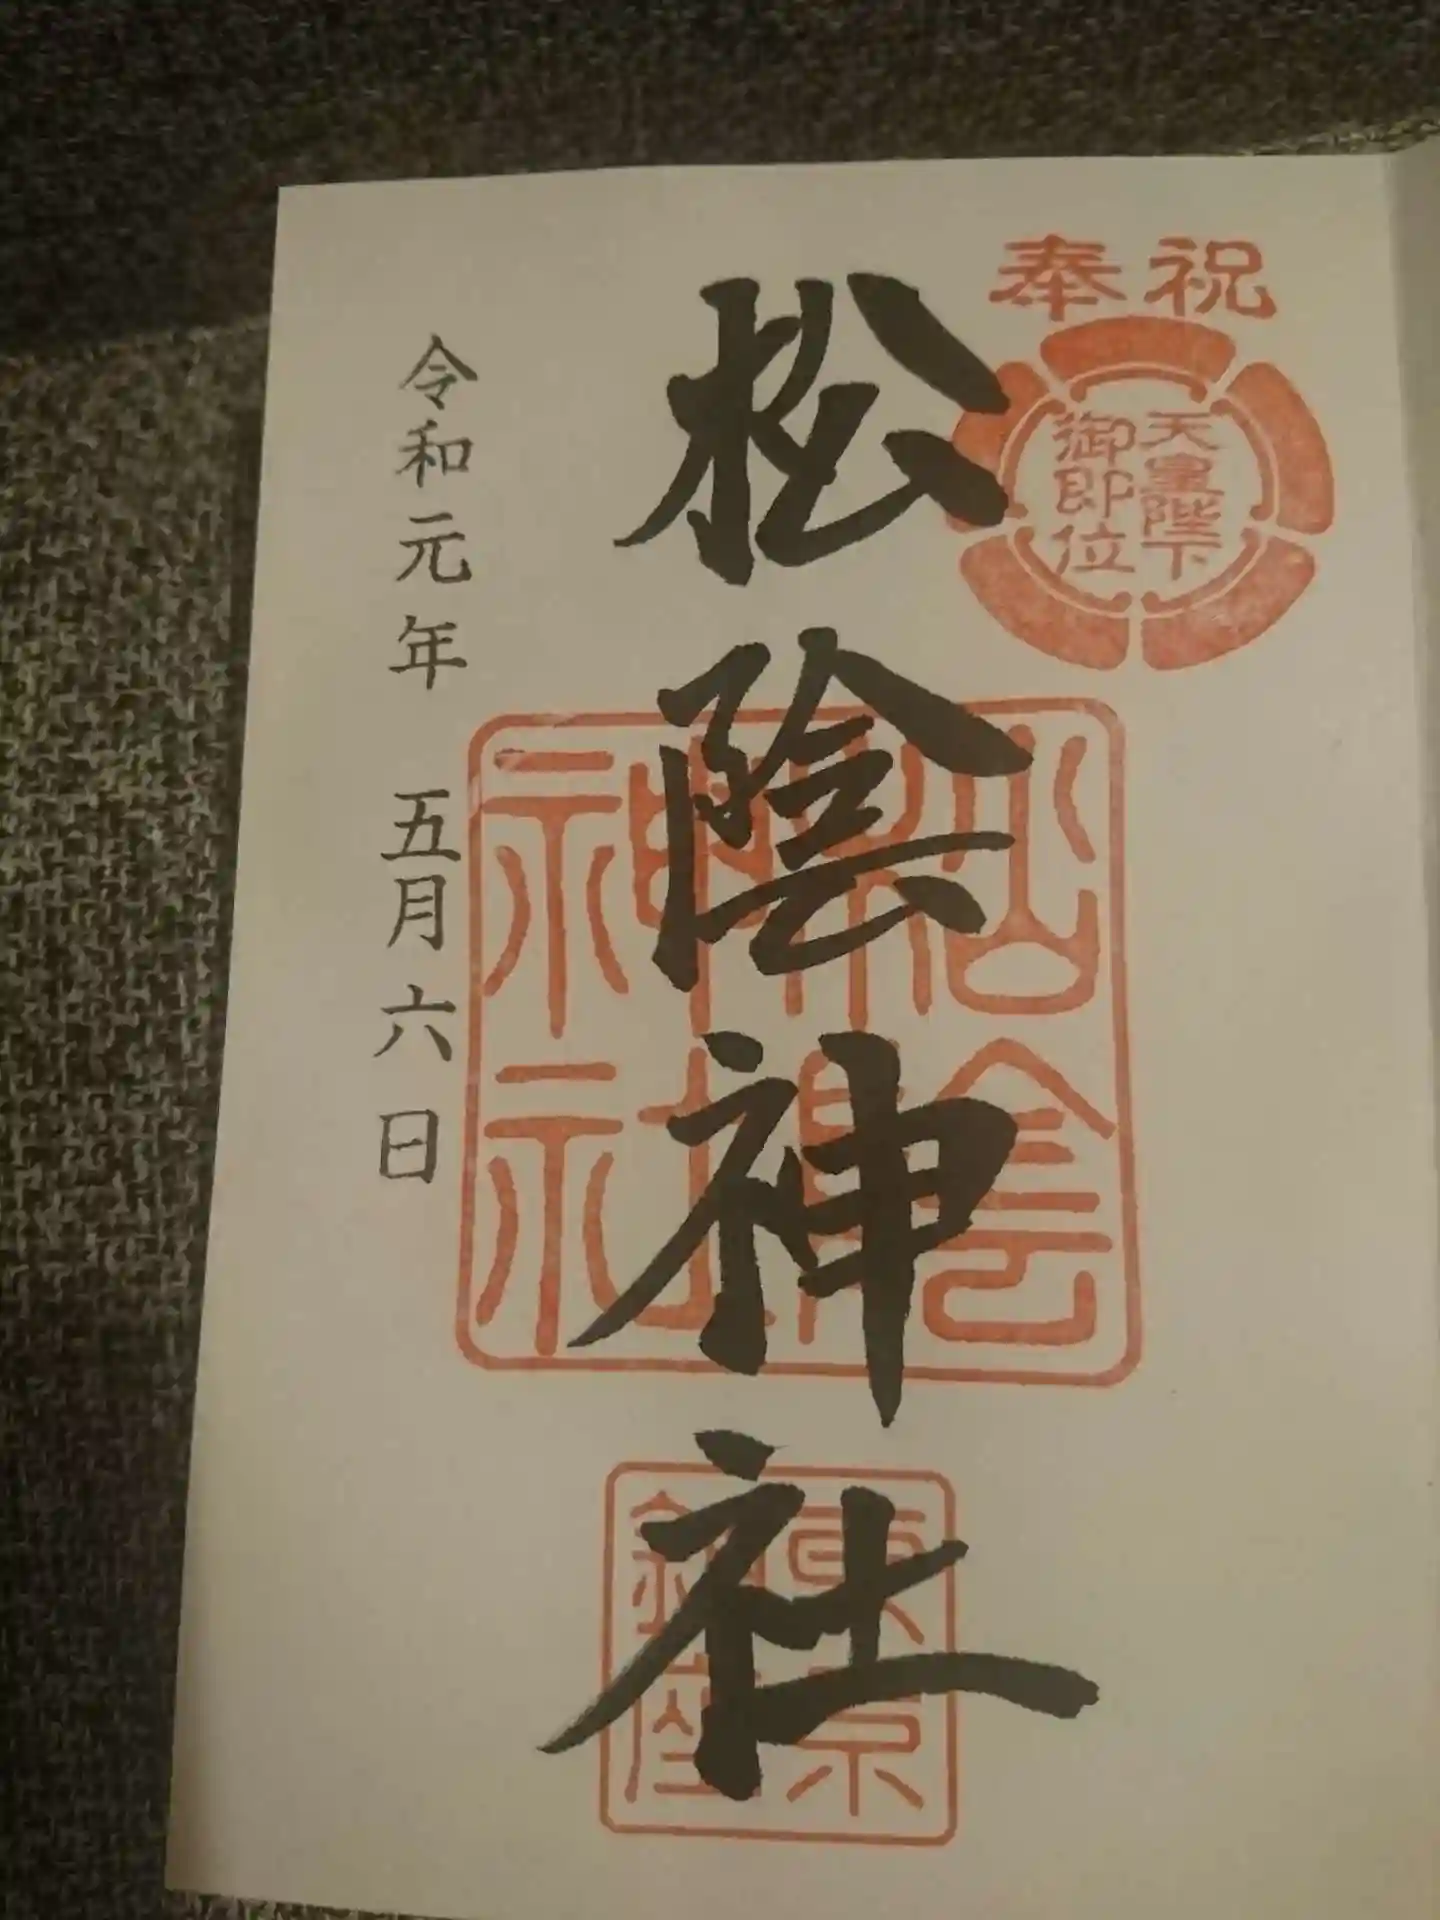 奉祝
天皇陛下
御即位
松陰神社
松陰
神社
東京
鎮座
令和元年 五月六日